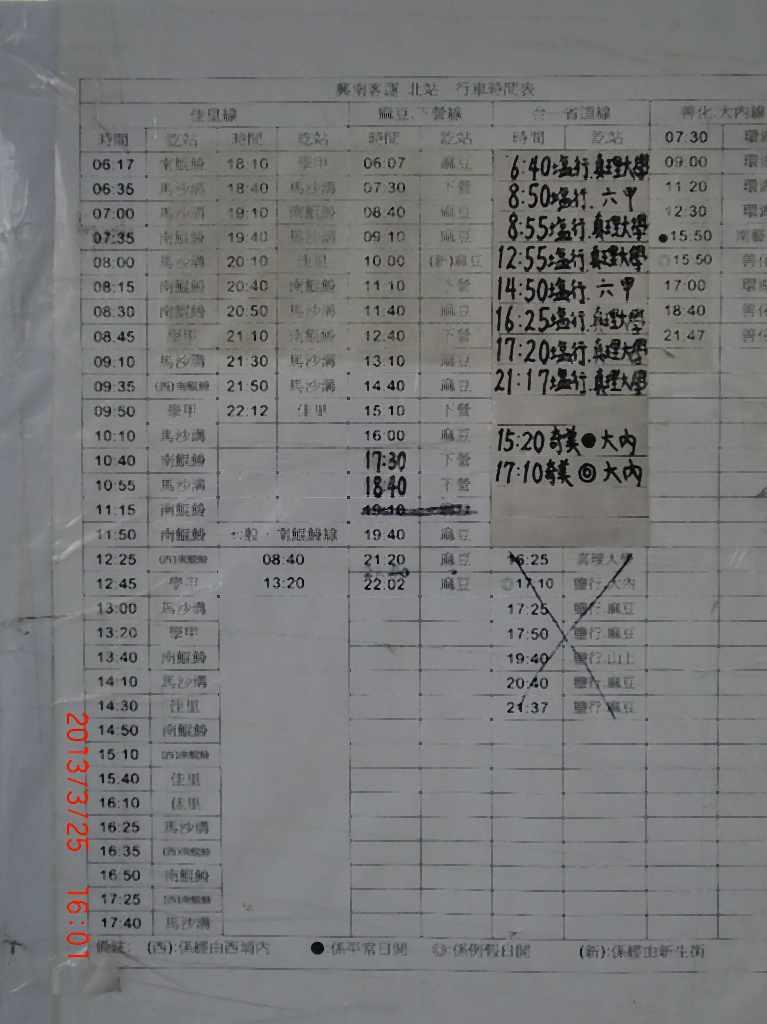 興南客運 北站 行車時間表
佳里線 麻豆.下營線 台一省道線 善化.大內線
時間 迄站 時間 迄站 時間 迄站 時間 迄站 07:30
06:17 南鯤鯓 18:10 學甲 06:07 麻豆 6:40塩行.真理大學 09:00
06:35 馬沙溝 18:40 馬沙溝 07:30 下營 8:50塩行.六甲 11:20
07:00 馬沙溝 19:10 南鯤鯓 08:40 麻豆 8:55塩行.真理大學 12:30
07:35 南鯤鯓 19:40 馬沙溝 09:10 麻豆 ●15:50
08:00 馬沙溝 20:10 佳里 10:00 (新)麻豆 12:55塩行.真理大學 ◎15:50
08:15 南鯤鯓 20:40 南鯤鯓 11:10 下營 14:50塩行.六甲 17:00
08:30 南鯤鯓 20:50 馬沙溝 11:40 麻豆 16:25塩行.真理大學 18:40
08:45 學甲 21:10 南鯤鯓 12:40 下營 17:20塩行.真理大學 21:47
09:10 馬沙溝 21:30 馬沙溝 13:10 麻豆
09:35 (西)南鯤鯓 21:50 馬沙溝 14:40 麻豆 21:17塩行.真理大學
09:50 學甲 22:12 佳里 15:10 下營
10:10 馬沙溝 16:00 麻豆 15:20奇美●大內
10:40 南鯤鯓 17:30 下營 17:10奇美◎大內
10:55 馬沙溝 18:40 下營
11:15 南鯤鯓 19:10 麻豆
11:50 南鯤鯓 南鯤鯓線 19:40 麻豆
12:25 (西)南鯤鯓 08:40 21:20 麻豆 16:25 真理大學
12:45 學甲 13:20 22:02 麻豆 ◎17:10 鹽行.大內
13:00 馬沙溝 17:25 鹽行.麻豆
13:20 學甲 17:50 鹽行.麻豆
13:40 南鯤鯓 19:40 鹽行.山上
14:10 馬沙溝 20:40 鹽行.麻豆
14:30 佳里 21:37 鹽行.麻豆
14:50 南鯤鯓
15:10 (西)南鯤鯓
15:40 佳里
16:10 佳里
16:25 馬沙溝
16:35 (西)南鯤鯓
16:50 南鯤鯓
17:25 (西)南鯤鯓
17:40 馬沙溝
備註: (西):係經由西埔內 ●:係平常日開 ◎:係例假日開 (新):係經由新生街
2013/3/25 16:01